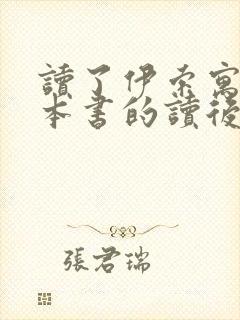 讀了伊索寓
本書的讀後
張君瑞